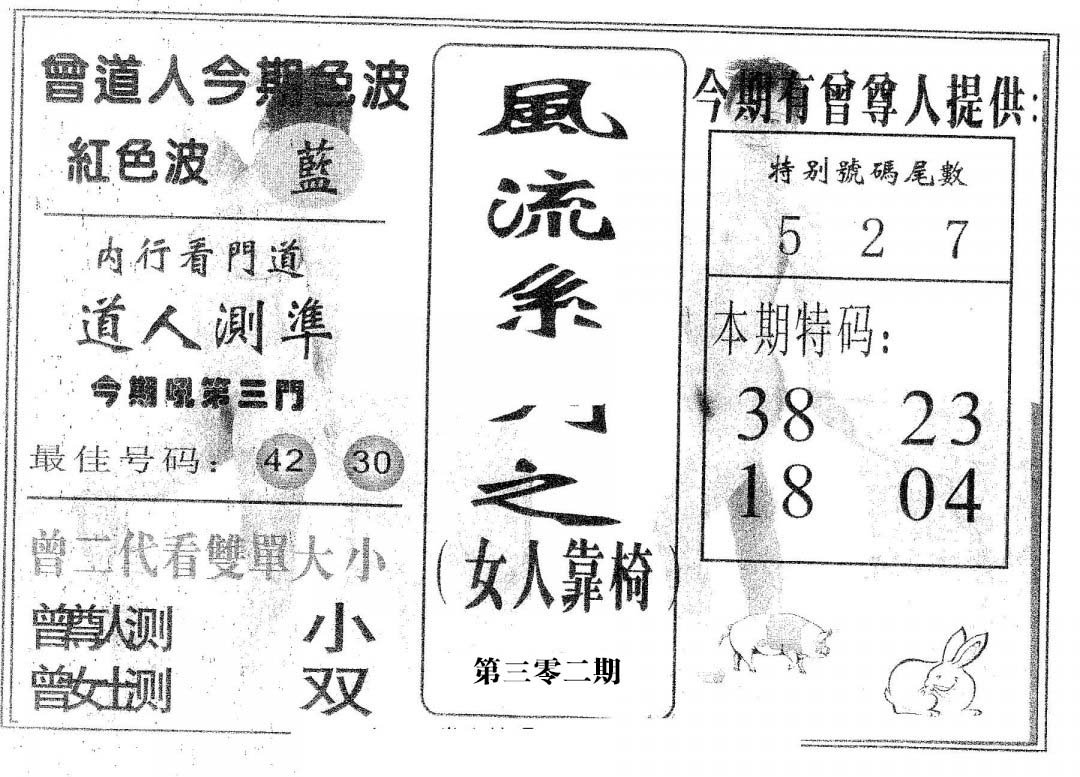 曾道人今期色波
紅色波 藍
内行看門道
道人測準
今期吼第三門
最佳号码: 42 30
曾二代看雙單大小
曾尊人测 小
曾女士测 双
風
流
系
之
(女人靠椅)
第三零二期
今期有曾尊人提供:
特别號碼尾數
5 2 7
本期特码:
38 23
18 04